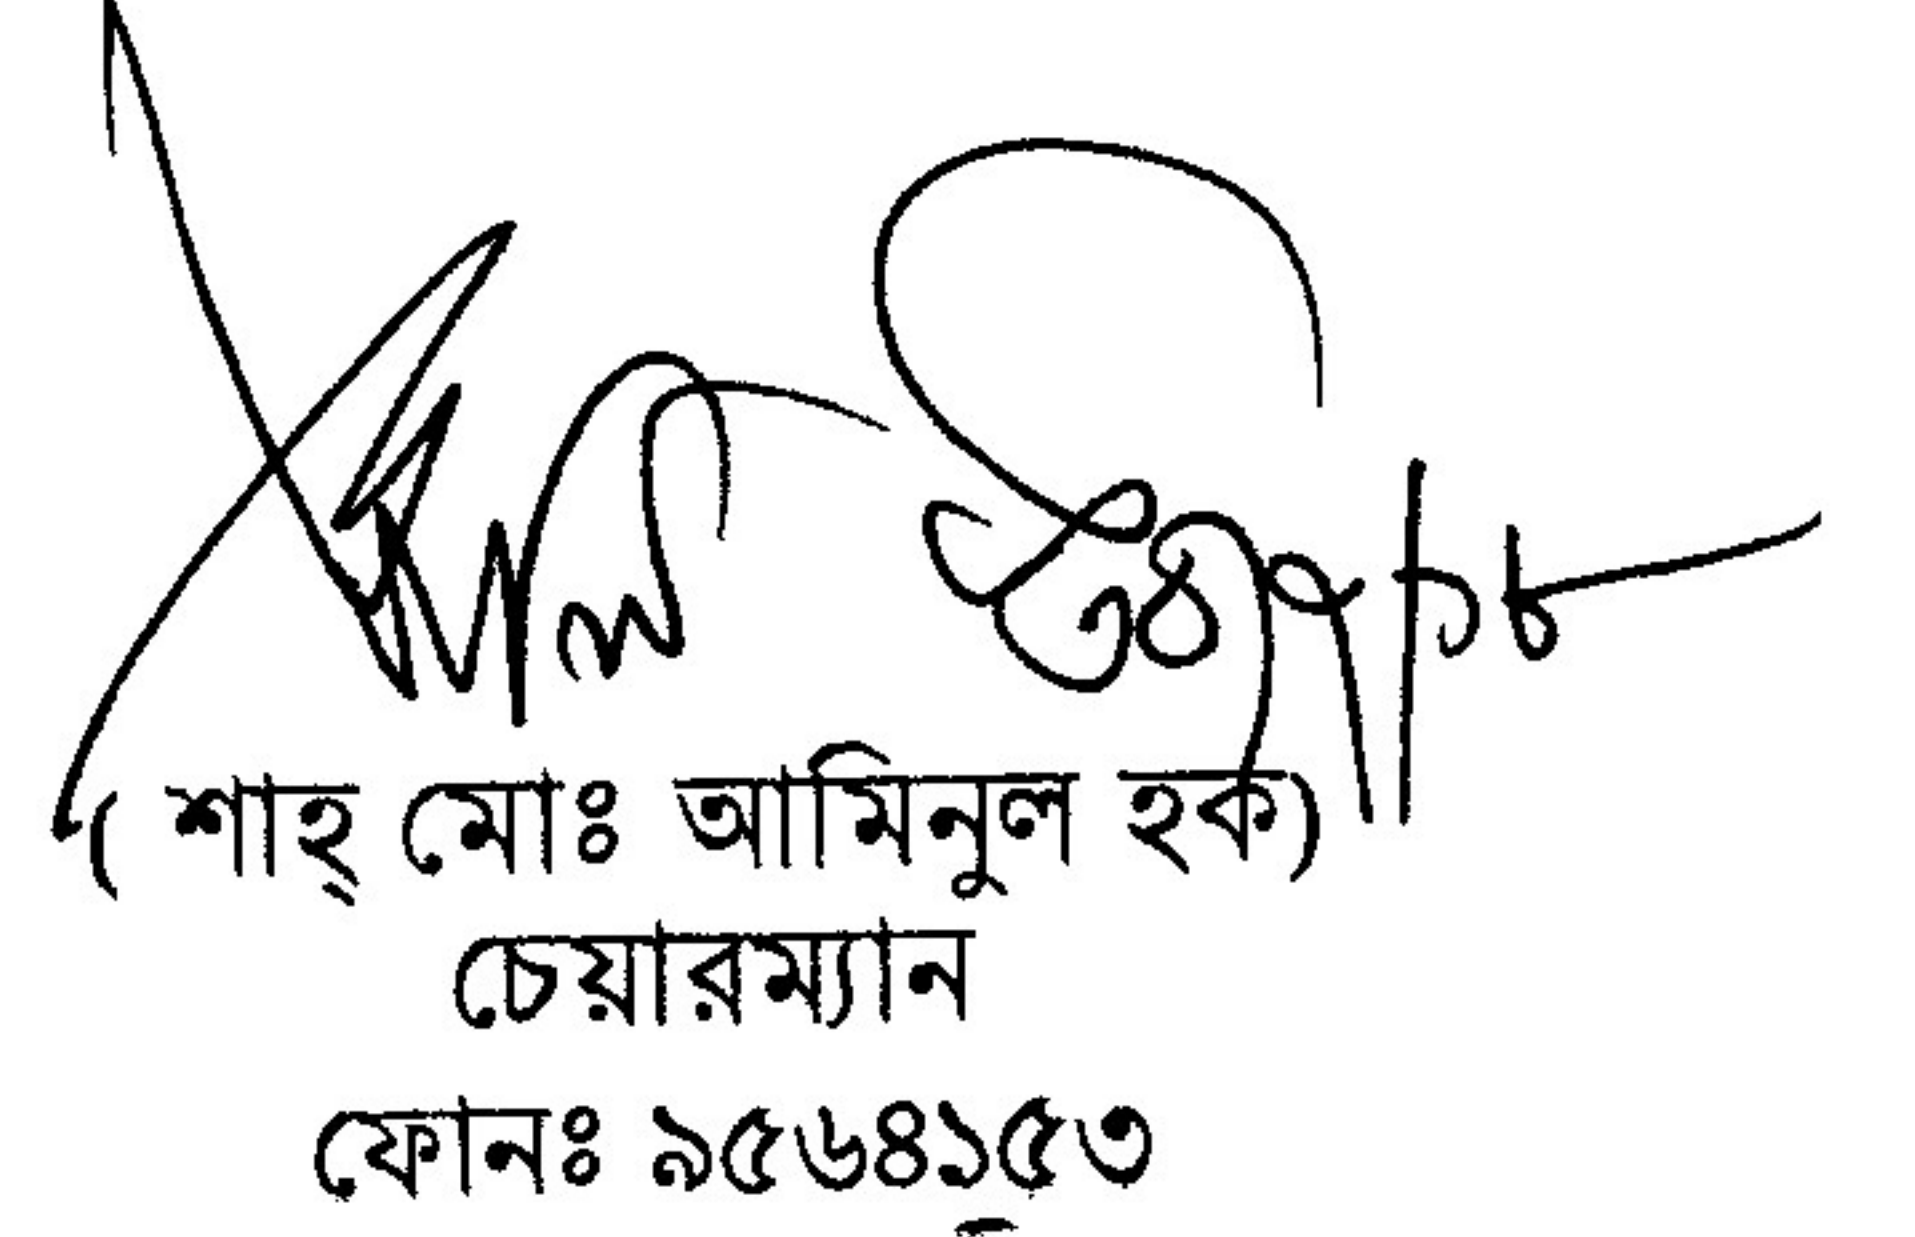 ( শাহ্ মোঃ আমিনুল হক)
চেয়ারম্যান
ফোনঃ ৯৫৬৪১৫৩